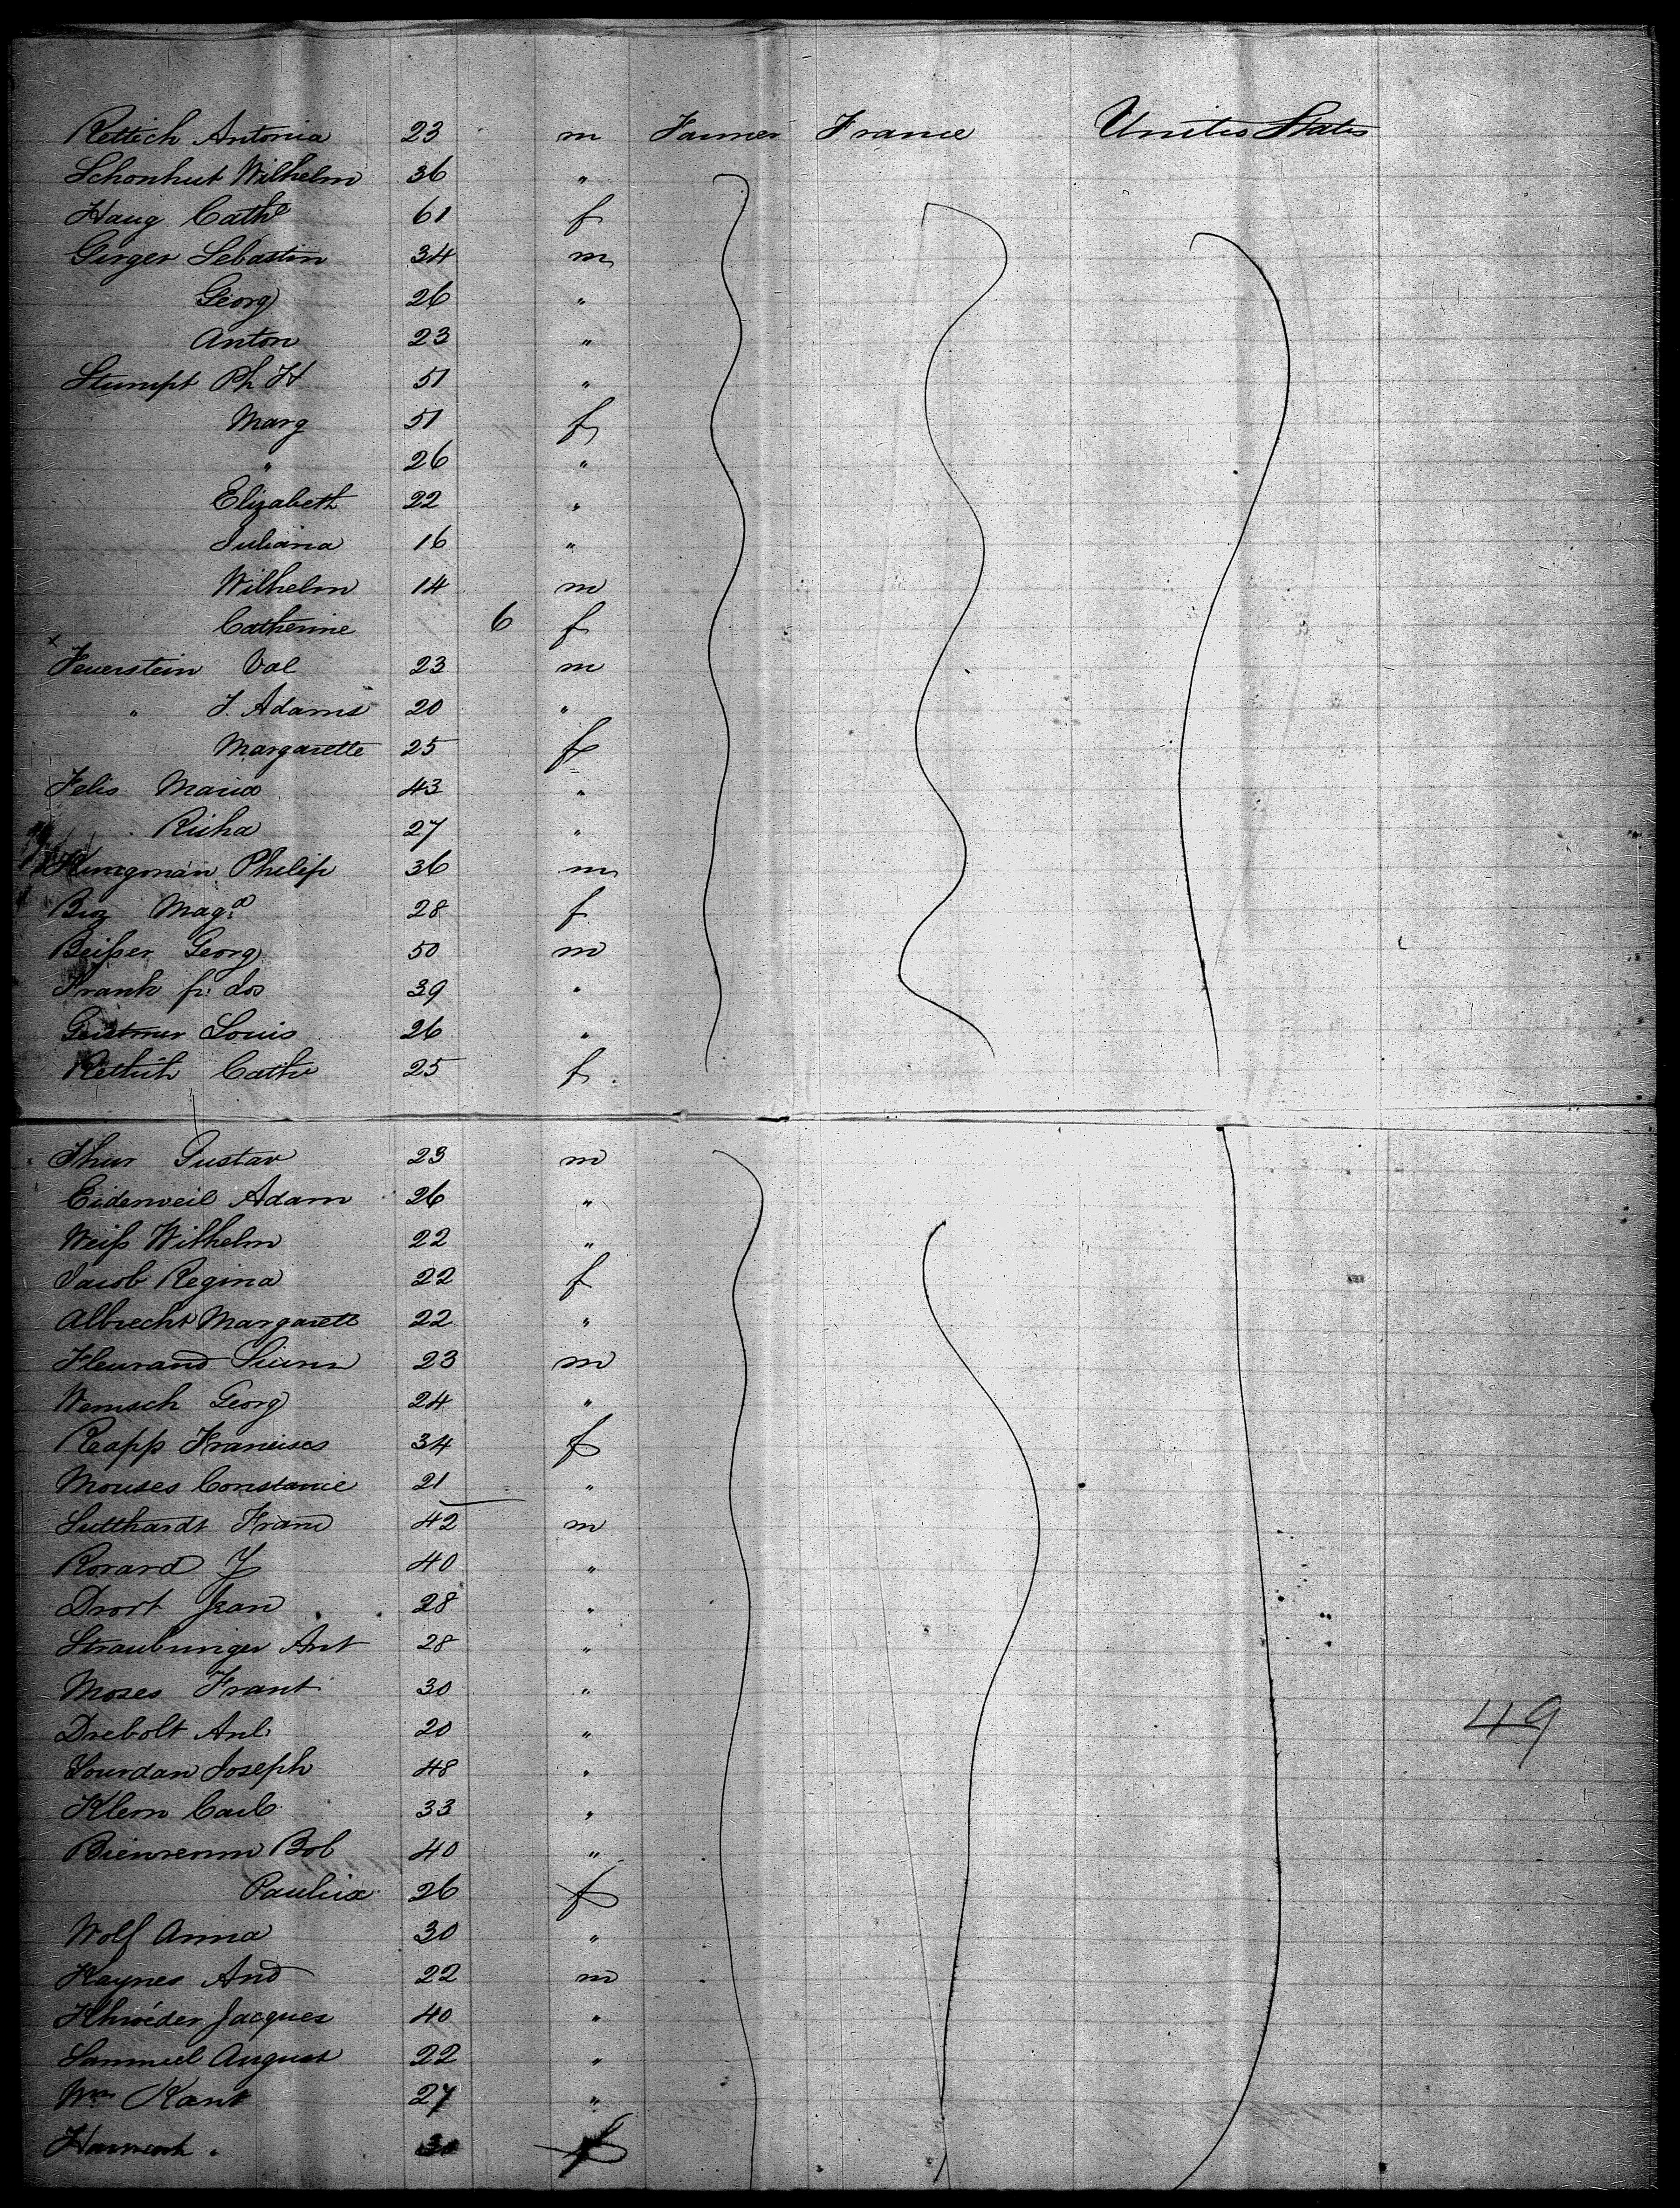 Rettich Antonia 23 m Farmer France United States
Schonhut Wilhelm 36 "
Haug Cathe 61 f
Girger Sebastin 34 m
Georg 26 "
Anton 23 "
Stumpt Ph H 51 "
Marg 51 f
" 26 "
Elizabeth 22 "
Juliana 16 "
Wilhelm 14 m
Catherine 6 f
x
Feuerstein Val 23 m
" J. Adams 20 "
Margarette 25 f
Felis Maria 43 "
Richa 27 "
Philip 36 m
Mag.a 28 f
Beißer Georg 50 m
Frank fr: Jos 39 "
Geistmer Louis 26 "
Rettich Cathe 25 f
Thur Gustav 23 m
Eidenveil Adam 26 "
Weiß Wilhelm 22 "
Jacob Regina 22 f
Albrecht Margarett 22 "
Fleurand 23 m
Wensch Georg 24 "
Rapp Francisca 34 f
Mouses Constancie 21 "
Lutthardt Franc 42 m
Rorard J 40 "
Drort Jean 28 "
Straubinger Ant 28 "
Moses Frant 30 "
Drebolt Anl. 20 "
49
Jourdan Joseph 48 "
Klem Carl 33 "
Bienvenm Bol 40 "
26 f
Wolf Anna 30 "
Haynes And 22 m
Jacques 40 "
Sammel August 22 "
Wm Kant 27 "
f